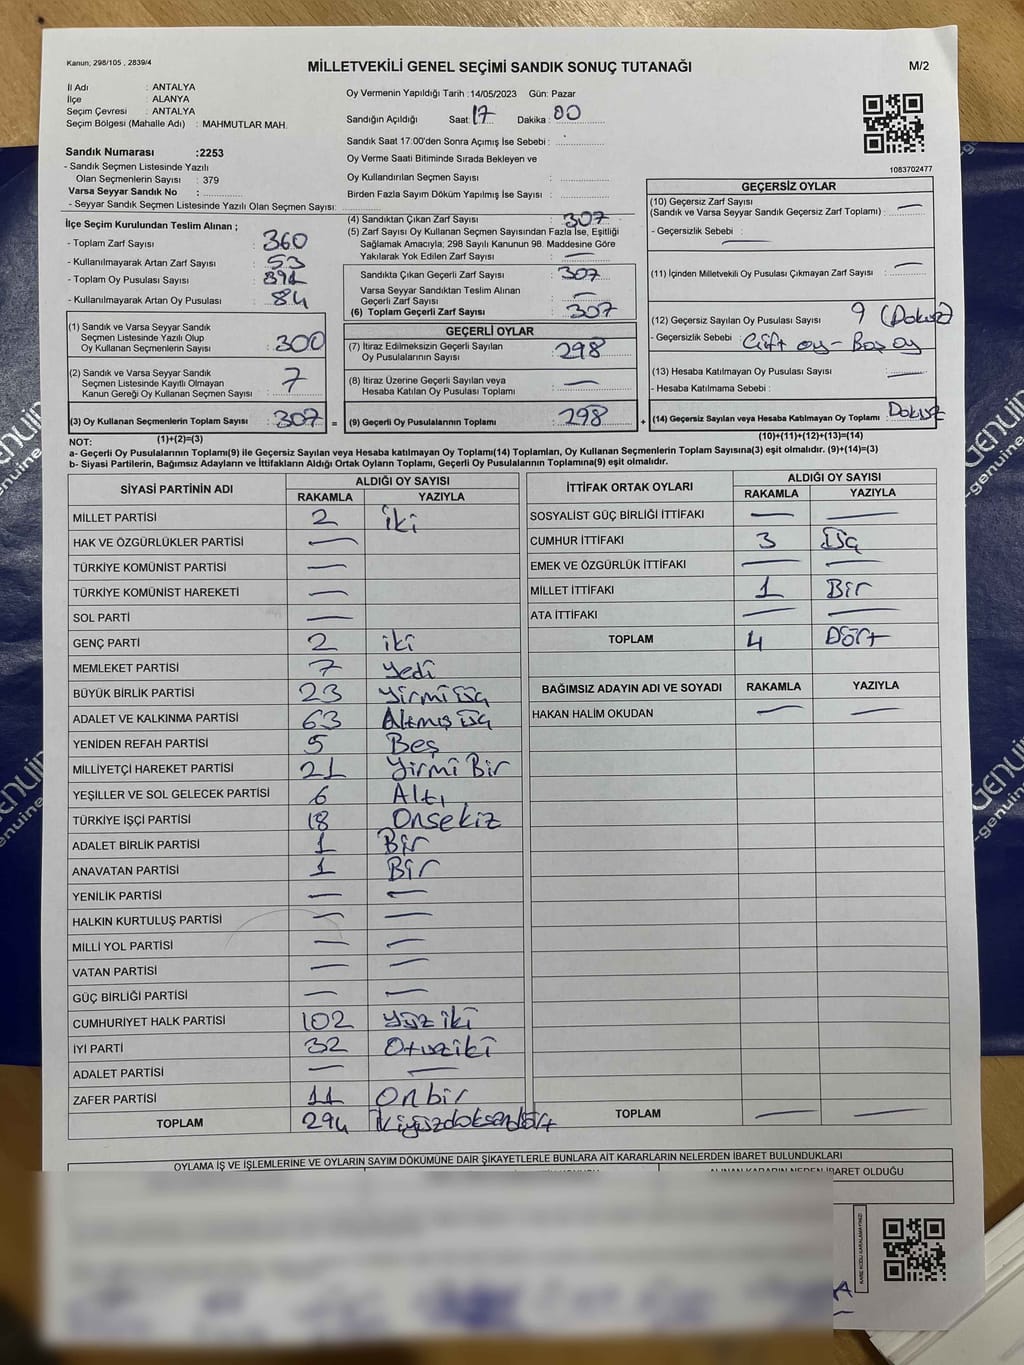 Kanun, 298/105 , 2839/4
MİLLETVEKİLİ GENEL SEÇİMİ SANDIK SONUÇ TUTANAĞI
M/2
İl Adı : ANTALYA
İlçe : ALANYA
Seçim Çevresi : ANTALYA
Seçim Bölgesi (Mahalle Adı) : MAHMUTLAR MAH.
Oy Vermenin Yapıldığı Tarih :14/05/2023 Gün: Pazar
Sandığın Açıldığı Saat: 17 Dakika : 00
Sandık Saat 17:00'den Sonra Açımış İse Sebebi :
Oy Verme Saati Bitiminde Sırada Bekleyen ve
Oy Kullandırılan Seçmen Sayısı :
Birden Fazla Sayım Döküm Yapılmış İse Sayısı :
1083702477
Sandık Numarası :2253
- Sandık Seçmen Listesinde Yazılı
Olan Seçmenlerin Sayısı : 379
Varsa Seyyar Sandık No :
- Seyyar Sandık Seçmen Listesinde Yazılı Olan Seçmen Sayısı:
İlçe Seçim Kurulundan Teslim Alınan ;
- Toplam Zarf Sayısı : 360
- Kullanılmayarak Artan Zarf Sayısı : 53
- Toplam Oy Pusulası Sayısı : 391
- Kullanılmayarak Artan Oy Pusulası : 84
(1) Sandık ve Varsa Seyyar Sandık
Seçmen Listesinde Yazılı Olup
Oy Kullanan Seçmenlerin Sayısı : 300
(2) Sandık ve Varsa Seyyar Sandık
Seçmen Listesinde Kayıtlı Olmayan
Kanun Gereği Oy Kullanan Seçmen Sayısı : 7
(3) Oy Kullanan Seçmenlerin Toplam Sayısı : 307 =
(4) Sandıktan Çıkan Zarf Sayısı : 307
(5) Zarf Sayısı Oy Kullanan Seçmen Sayısından Fazla İse, Eşitliği
Sağlamak Amacıyla; 298 Sayılı Kanunun 98. Maddesine Göre
Yakılarak Yok Edilen Zarf Sayısı : —
Sandıkta Çıkan Geçerli Zarf Sayısı : 307
Varsa Seyyar Sandıktan Teslim Alınan
Geçerli Zarf Sayısı : —
(6) Toplam Geçerli Zarf Sayısı : 307
GEÇERLİ OYLAR
(7) İtiraz Edilmeksizin Geçerli Sayılan
Oy Pusulalarının Sayısı : 298
(8) İtiraz Üzerine Geçerli Sayılan veya
Hesaba Katılan Oy Pusulası Toplamı : —
(9) Geçerli Oy Pusulalarının Toplamı : 298 +
GEÇERSİZ OYLAR
(10) Geçersiz Zarf Sayısı
(Sandık ve Varsa Seyyar Sandık Geçersiz Zarf Toplamı) : —
- Geçersizlik Sebebi : —
(11) İçinden Milletvekili Oy Pusulası Çıkmayan Zarf Sayısı : —
(12) Geçersiz Sayılan Oy Pusulası Sayısı : 9 (Dokuz)
- Geçersizlik Sebebi : Çift oy - Boş oy
(13) Hesaba Katılmayan Oy Pusulası Sayısı : —
- Hesaba Katılmama Sebebi :
(14) Geçersiz Sayılan veya Hesaba Katılmayan Oy Toplamı : Dokuz
NOT: (1)+(2)=(3) (10)+(11)+(12)+(13)=(14)
a- Geçerli Oy Pusulalarının Toplamı(9) ile Geçersiz Sayılan veya Hesaba katılmayan Oy Toplamı(14) Toplamları, Oy Kullanan Seçmenlerin Toplam Sayısına(3) eşit olmalıdır. (9)+(14)=(3)
b- Siyasi Partilerin, Bağımsız Adayların ve İttifakların Aldığı Ortak Oyların Toplamı, Geçerli Oy Pusulalarının Toplamına(9) eşit olmalıdır.
SİYASİ PARTİNİN ADI ALDIĞI OY SAYISI
RAKAMLA YAZIYLA
MİLLET PARTİSİ 2 iki
HAK VE ÖZGÜRLÜKLER PARTİSİ —
TÜRKİYE KOMÜNİST PARTİSİ —
TÜRKİYE KOMÜNİST HAREKETİ —
SOL PARTİ —
GENÇ PARTİ 2 iki
MEMLEKET PARTİSİ 7 yedi
BÜYÜK BİRLİK PARTİSİ 23 yirmi üç
ADALET VE KALKINMA PARTİSİ 63 Altmış üç
YENİDEN REFAH PARTİSİ 5 Beş
MİLLİYETÇİ HAREKET PARTİSİ 21 Yirmi Bir
YEŞİLLER VE SOL GELECEK PARTİSİ 6 Altı
TÜRKİYE İŞÇİ PARTİSİ 18 Onsekiz
ADALET BİRLİK PARTİSİ 1 Bir
ANAVATAN PARTİSİ 1 Bir
YENİLİK PARTİSİ — —
HALKIN KURTULUŞ PARTİSİ — —
MİLLİ YOL PARTİSİ — —
VATAN PARTİSİ — —
GÜÇ BİRLİĞİ PARTİSİ — —
CUMHURİYET HALK PARTİSİ 102 yüz iki
İYİ PARTİ 32 Otuziki
ADALET PARTİSİ — —
ZAFER PARTİSİ 11 Onbir
TOPLAM 294 ikiyüzdoksandört
İTTİFAK ORTAK OYLARI ALDIĞI OY SAYISI
RAKAMLA YAZIYLA
SOSYALİST GÜÇ BİRLİĞİ İTTİFAKI — —
CUMHUR İTTİFAKI 3 üç
EMEK VE ÖZGÜRLÜK İTTİFAKI — —
MİLLET İTTİFAKI 1 Bir
ATA İTTİFAKI — —
TOPLAM 4 Dört
BAĞIMSIZ ADAYIN ADI VE SOYADI RAKAMLA YAZIYLA
HAKAN HALİM OKUDAN — —
TOPLAM — —
OYLAMA İŞ VE İŞLEMLERİNE VE OYLARIN SAYIM DÖKÜMÜNE DAİR ŞİKAYETLERLE BUNLARA AİT KARARLARIN NELERDEN İBARET BULUNDUKLARI
ALINAN KARARIN NEDEN İBARET OLDUĞU
KARE KODU KARALAMAYINIZ!